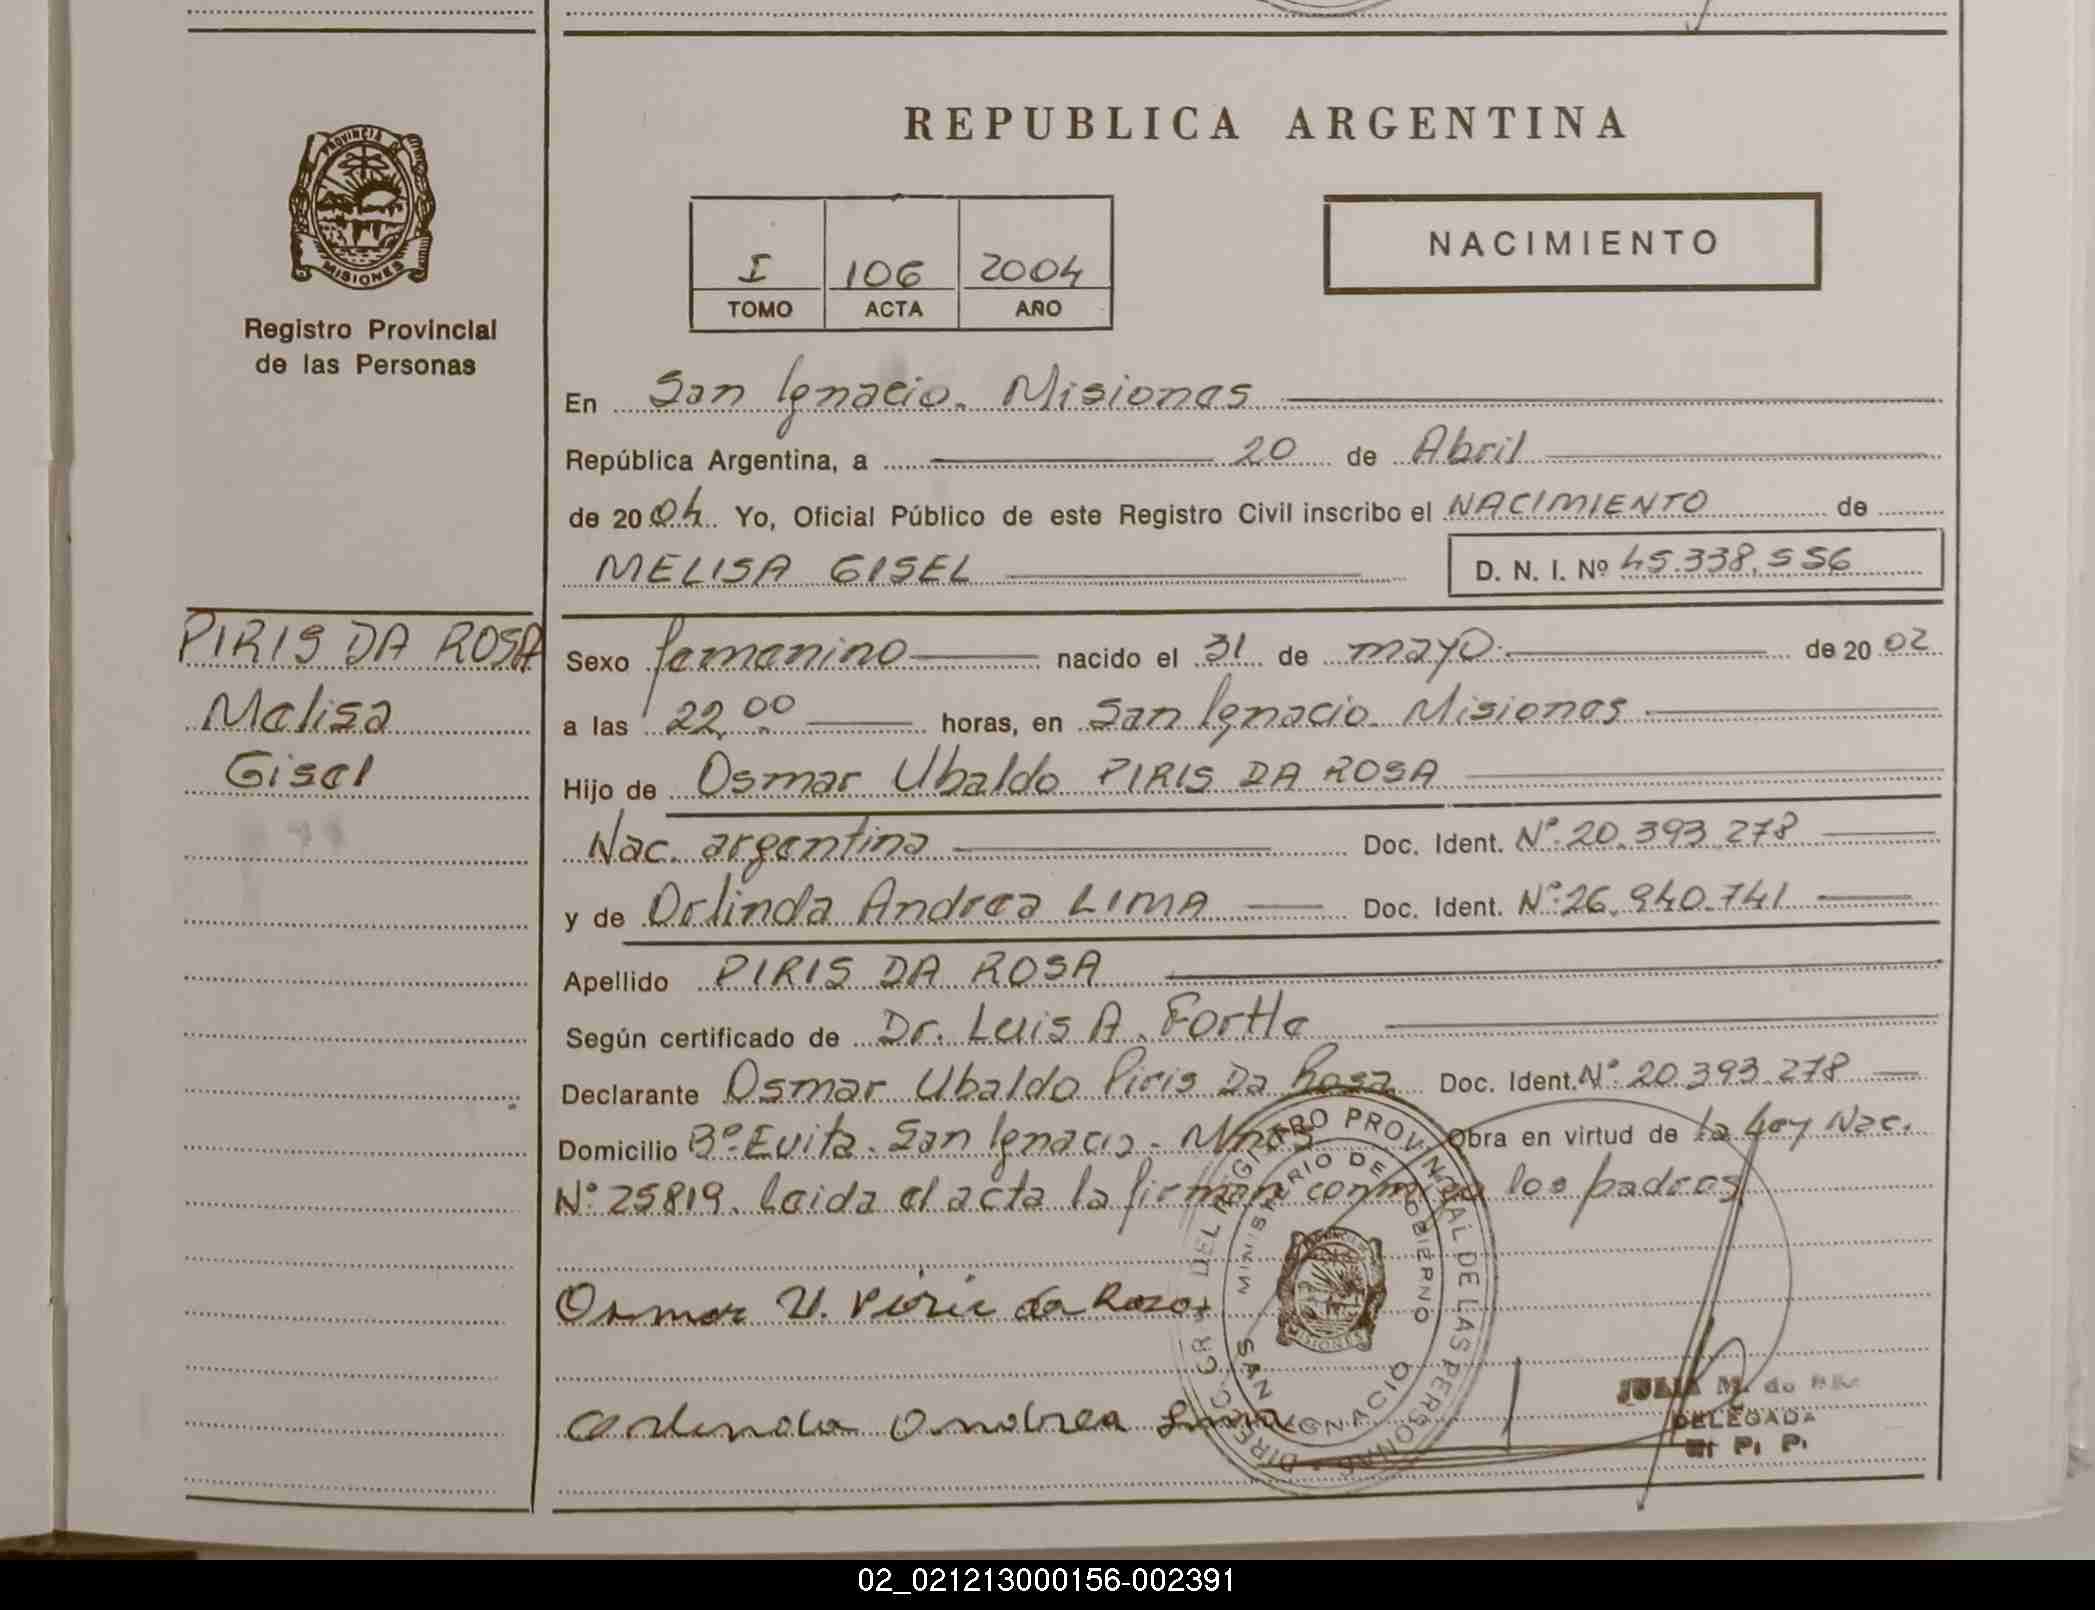 REPUBLICA ARGENTINA
PROVINCIA DE
MISIONES
Registro Provincial
de las Personas
NACIMIENTO
I 106 2004
TOMO ACTA AÑO
En San Ignacio. Misiones
República Argentina, a 20 de Abril
de 2004. Yo, Oficial Público de este Registro Civil inscribo el NACIMIENTO de
MELISA GISEL D. N. I. Nº 45.338.556
PIRIS DA ROSA
Melisa
Gisel
Sexo femenino nacido el 31 de mayo de 2002
a las 22,00 horas, en San Ignacio. Misiones
Hijo de Osmar Ubaldo PIRIS DA ROSA
Nac. argentina Doc. Ident. Nº 20.393.278
y de Orlinda Andrea LIMA Doc. Ident. Nº 26.940.741
Apellido PIRIS DA ROSA
Según certificado de Dr. Luis A.
Declarante Osmar Ubaldo Piris Da Rosa Doc. Ident. Nº 20.393.278
Domicilio Bº Evita. San Ignacio - Mnes Obra en virtud de la Ley Nac.
Nº 25819. Leida el acta la firman conmigo los padres
Osmar U. Piris da Rosa
Orlinda Andrea Lima
DIRECC. GRAL. DEL REGISTRO PROVINCIAL DE LAS PERSONAS
MINISTERIO DE GOBIERNO
SAN IGNACIO
MISIONES
JULIA M. de
DELEGADA
02_021213000156-002391